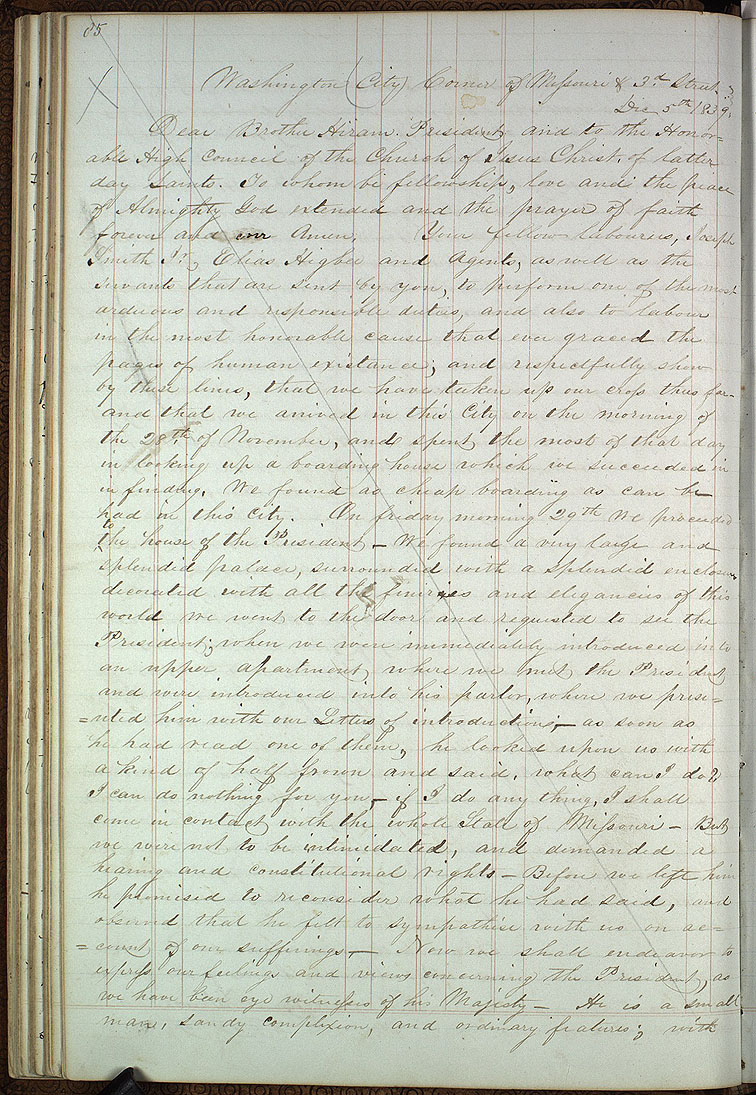 85
Washington (City) Corner of Missouri & 3.d Street
Dec 5th 1839.
Dear Brother Hiram President and to the Honor-
able High Council of the Church of Jesus Christ, of latter
day Saints. To whom be fellowship, love and the peace
of Almighty God extended and the prayer of faith
forever and ever Amen. Your fellow labourers, Joseph
Smith Jr., Elias Higbee and Agents, as well as the
servants that are sent by you, to perform one of the most
arduous and responsible duties, and also to labour
in the most honorable cause that ever graced the
pages of human existance; and respectfully show
by these lines, that we have taken up our cross thus far-
and that we arrived in this City on the morning of
the 28th of November, and spent the most of that day
in looking up a boarding house which we succeeded in
in finding. We found as cheap boarding as can be
had in this City. On friday morning 29th we proceeded
to
the house of the President — We found a very large and
splendid palace, surrounded with a splendid enclosure
decorated with all the fineries and elegancies of this
world we went to the door and requested to see the
President, when we were immediately introduced into
an upper apartment where we met the President
and were introduced into his parlor, where we prese-
=nted him with our Letters of introductions;— as soon as
he had read one of them, he looked upon us with
a kind of half frown and said, what can I do?
I can do nothing for you,— if I do any thing, I shall
come in contact with the whole State of Missouri — But
we were not to be intimidated, and demanded a
hearing and constitutional rights — Before we left him
he promised to reconsider what he had said, and
observed that he felt to sympathise with us on ac=
=count of our sufferings — Now we shall endeavor to
express our feelings and views concerning the President, as
we have been eye witnesses of his Majesty — He is a small
man, sandy complexion, and ordinary features; with